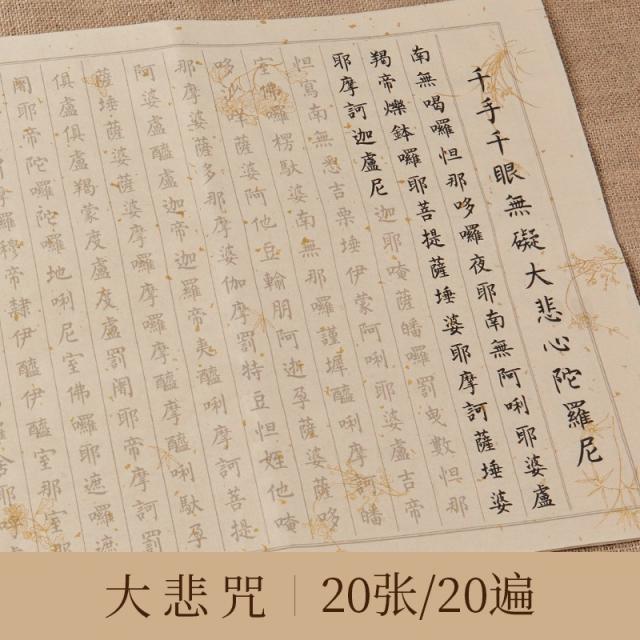 千手千眼無礙大悲心陀羅尼
南無喝囉怛那哆囉夜耶南無阿唎耶婆盧
羯帝爍鉢囉耶菩提薩埵婆耶摩訶薩埵婆
耶摩訶迦盧尼迦耶唵薩皤囉罰曳數怛那
怛寫南無悉吉栗埵伊蒙阿唎耶婆盧吉帝
室佛囉楞馱婆南無那囉謹墀醯唎摩訶皤
哆沙咩薩婆阿他豆輸朋阿逝孕薩婆薩哆
那摩婆薩多那摩婆伽摩罰特豆怛姪他唵
阿婆盧醯盧迦帝迦羅帝夷醯唎摩訶菩提
薩埵薩婆薩婆摩囉摩囉摩醯摩醯唎馱孕
俱盧俱盧羯蒙度盧度盧罰闍耶帝摩訶罰
闍耶帝陀囉陀囉地唎尼室佛囉耶遮囉遮
摩囉穆帝隸伊醯伊醯室那室
大悲咒|20张/20遍